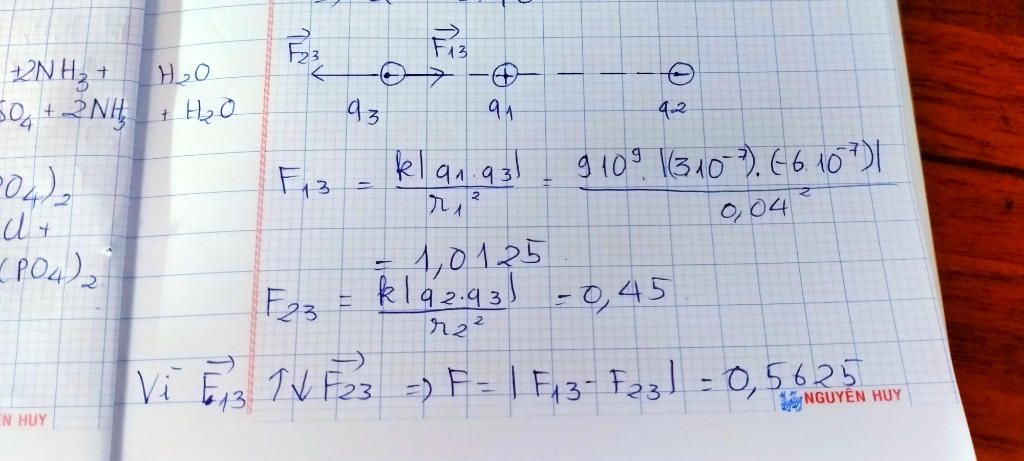 +2NH3 + H2O
SO4 + 2NH3 + H2O
PO4)2
Cl +
(PO4)2
N HUY
F23 F13
q3 q1 q2
F13 = k|q1.q3| / r1² = 9 10⁹. |(3 10⁻⁷). (-6. 10⁻⁷)| / 0,04²
= 1,0125
F23 = k|q2.q3| / r2² = 0,45
Vì F13 ↑↓ F23 => F = |F13 - F23| = 0,5625
NGUYÊN HUY